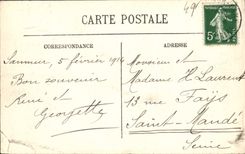 49f
CARTE POSTALE
CORRESPONDANCE
ADRESSE
Saumur, 5 février 1914
Bon souvenir
René et
Georgette
Monsieur et
Madame H. Laurent
13 rue Faÿs
Saint-Mandé
Seine
5c